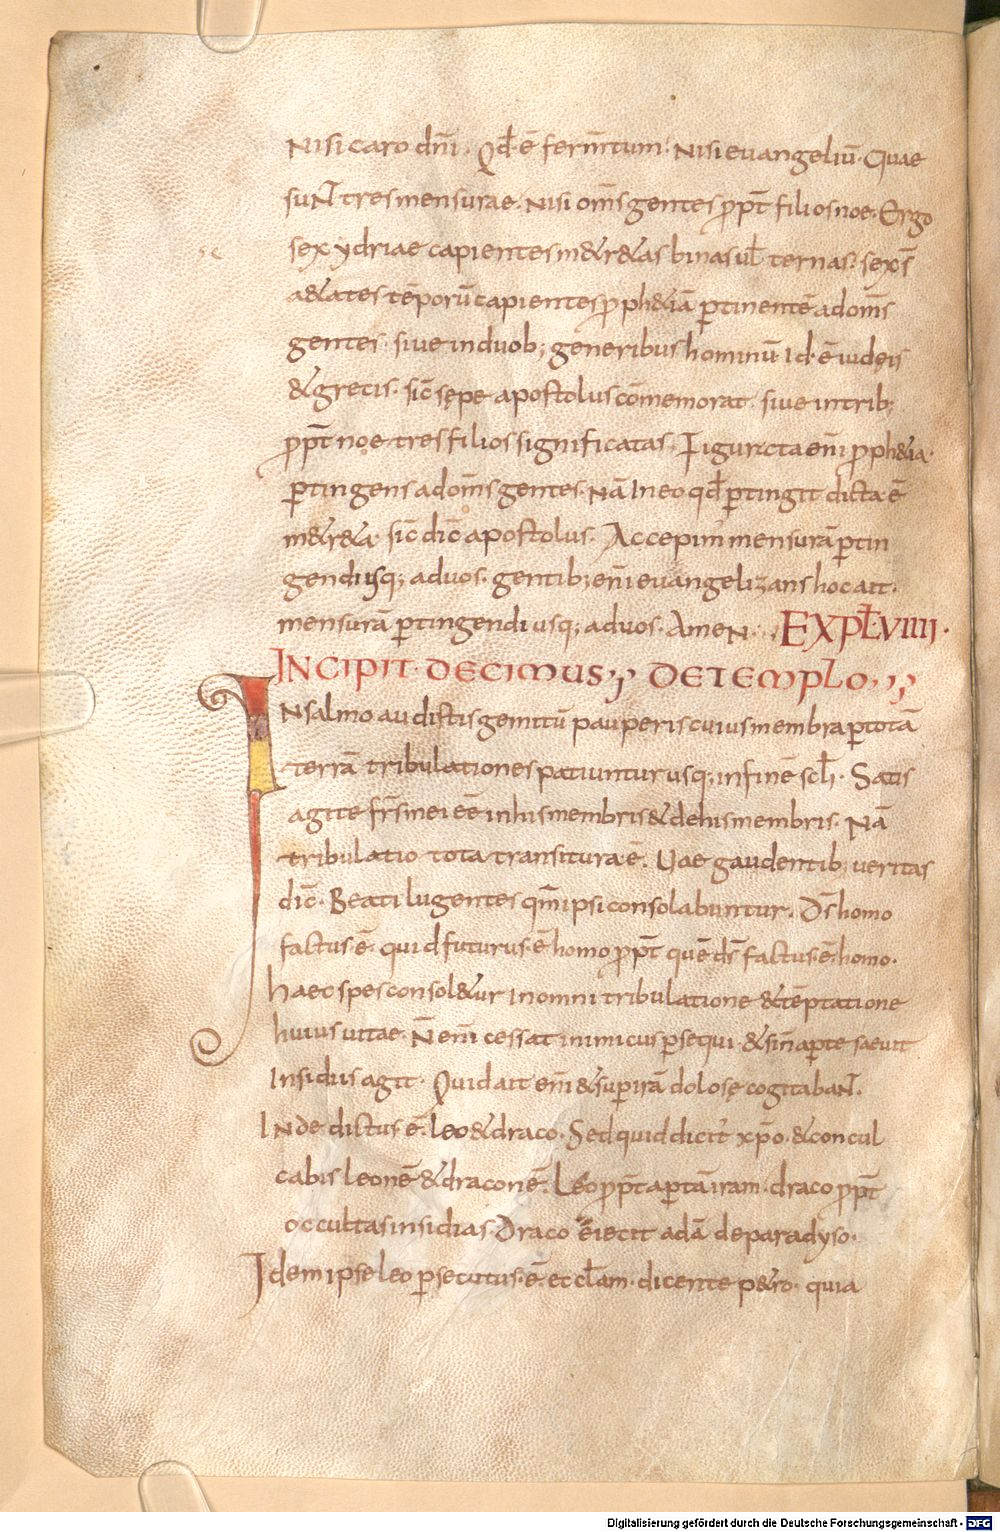 Nisi caro dn̄i. Qd̄ ē ferm̄tum. Nisi euangeliū. Quae
suNT tres mensurae. Nisi om̄s gentes ꝓpt̄ filios noe. Ergo
sex ydriae capientes m&r&as binas ul̄ ternas. sex s̄
a&ates tēporū capientes ꝓph&iā ꝑtinentē ad om̄s
gentes. siue in duob; generibus hominū Id ē iudęis
& grecis. sic̄ sępe apostolus cōmemorat. siue in trib;
ꝓpt̄ noe tres filios significatas. Figurata en̄i ꝓph&ia.
ꝑtingens ad om̄s gentes. Nā In eo qd̄ ꝑtingit dicta ē
m&r&a. sic̄ dic̄ apostolus. Accepim' mensurā ꝑtin
gendi usq; ad uos. gentib; en̄i euangelizans hoc ait.
mensurā ꝑtingendi usq; ad uos. AmeN. EXPL̄ VIIII.
INCIPIT DECIMUS; DE TEMPLO;
IN salmo audistis gemitū pauperis cuius membra ꝑ totā
terrā tribulationes patiuntur usq; in finē scl̄i. Satis
agite fr̄s mei eē in his membris & de his membris. Nā
tribulatio tota transitura ē. Uae gaudentib; ueritas
dic̄. Beati lugentes qm̄ ipsi consolabuntur. Ds̄ homo
factus. ē. quid futurus. ē homo ꝓpt̄ quē ds̄ factus. ē. homo.
haec spes consol&ur In omni tribulatione & tēptatione
huius uitae. N̄ en̄i cessat inimicus ꝑsequi. & si n̄ aꝑte saeuit
Insidiis agit. Quid ait en̄i & sup irā dolosę cogitabaNT.
INde dictus ē. leo & draco. Sed quid dicit' xp̄o. & concul
cabis leonē & draconē. Leo ꝓpt̄ aꝑtā iram. draco ꝓpt̄
occultas insidias. Draco eiecit adā de paradyso.
Idem ipse leo ꝑsecutus. ē. eccl̄am. dicente p&ro. quia
Digitalisierung gefördert durch die Deutsche Forschungsgemeinschaft - DFG